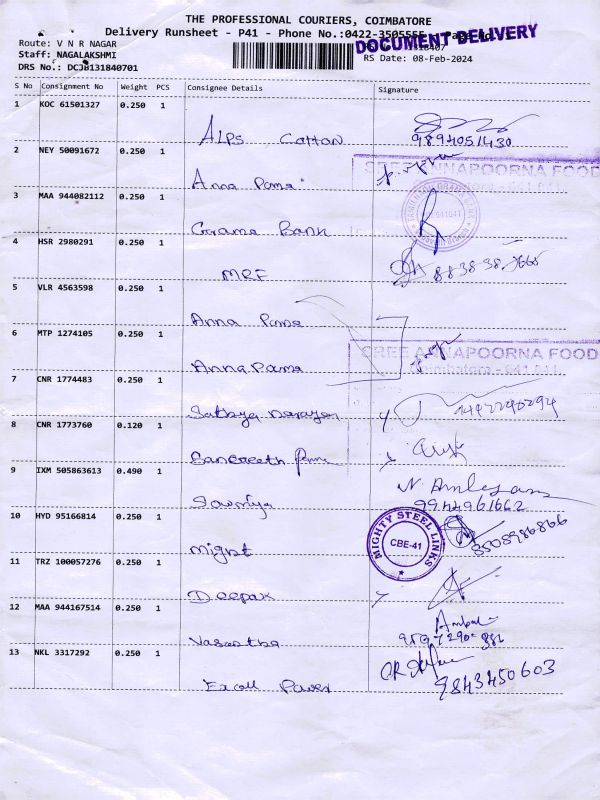 THE PROFESSIONAL COURIERS, COIMBATORE
Delivery Runsheet - P41 - Phone No.:0422-3505555 Page No
DOCUMENT DELIVERY
Route: V N R NAGAR
Staff: NAGALAKSHMI
DRS No.: DCJB131840701
RS Date: 08-Feb-2024
S No Consignment No Weight PCS Consignee Details Signature
1 KOC 61501327 0.250 1 Alps Cotton 9894051430
2 NEY 50091672 0.250 1 Anna Poma
SREE ANNAPOORNA FOOD
3 MAA 944082112 0.250 1 Grama Bank
4 HSR 2980291 0.250 1 MRF
5 VLR 4563598 0.250 1 Anna Poma
6 MTP 1274105 0.250 1 Anna Poma
SREE ANNAPOORNA FOOD
Coimbatore - 641 041
7 CNR 1774483 0.250 1 Sathya Narayan
8 CNR 1773760 0.120 1
9 IXM 505863613 0.490 1 Sowmiya 9944961662
10 HYD 95166814 0.250 1 Might
MIGHTY STEEL LINKS
CBE-41
11 TRZ 100057276 0.250 1 Deepax
12 MAA 944167514 0.250 1 Vasantha
13 NKL 3317292 0.250 1 Excell Power 9843450603